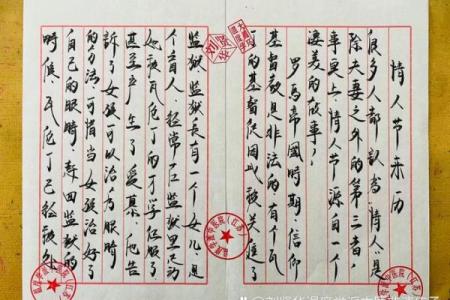 情人节来历
很多人都认为"情人"是
除夫妻之外的第三者,
事实上情人节源自一个
凄美的故事。
罗马帝国时期,信仰
基督教是非法的,有个瓦
的基督徒因此被关进了
监狱,监狱长有一个女儿,是
个盲人,经常在监狱里走动
她被瓦危丁的才学征服,
甚至产生了爱慕,他告
诉了女孩可以治眼睛
的方法,可惜当女孩治好了
自己的眼睛,赶回监狱的
时候,瓦危丁已经被处